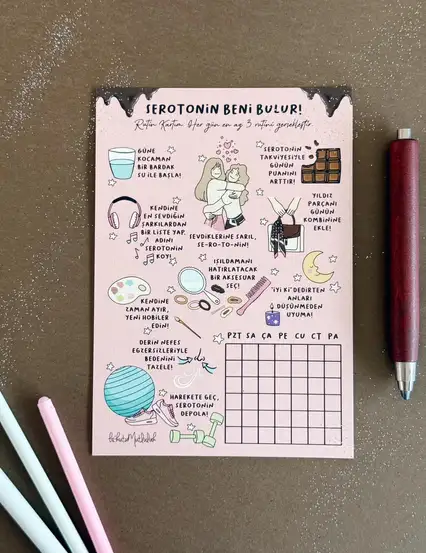 SEROTONİN BENİ BULUR!
Rutin Kartım. Her gün en az 3 rutini gerçekleştir.
GÜNE
KOCAMAN
BİR BARDAK
SU İLE BAŞLA!
SEROTONİN
TAKVİYESİYLE
GÜNÜN
PUANINI
ARTTIR!
KENDİNE
EN SEVDİĞİN
ŞARKILARDAN
BİR LİSTE YAP.
ADINI
SEROTONİN
KOY!
SEVDİKLERİNE SARIL,
SE-RO-TO-NİN!
YILDIZ
PARÇANI
GÜNÜN
KOMBİNİNE
EKLE!
IŞILDAMANI
HATIRLATACAK
BİR AKSESUAR
SEÇ!
KENDİNE
ZAMAN AYIR,
YENİ HOBİLER
EDİN!
"İYİ Kİ" DEDİRTEN
ANLARI
DÜŞÜNMEDEN
UYUMA!
DERİN NEFES
EGZERSİZLERİYLE
BEDENİNİ
TAZELE!
HAREKETE GEÇ,
SEROTONİN
DEPOLA!
PZT SA ÇA PE CU CT PA